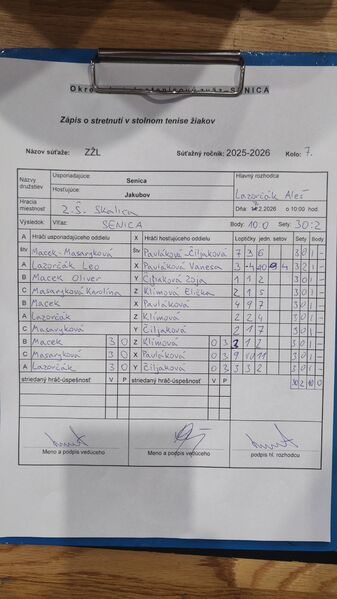 SENICA
Zápis o stretnutí v stolnom tenise žiakov
Názov súťaže: ZŽL Súťažný ročník: 2025-2026 Kolo: 7.
Názvy družstiev Usporiadajúce: Senica Hlavný rozhodca
Hosťujúce: Jakubov Lazorčák Aleš
Hracia miestnosť Z.Š. Skalica Dňa: 2.2026 o 10:00 hod
Výsledok: Víťaz: SENICA Body: 10:0 Sety: 30:2
A Hráči usporiadajúceho oddielu X Hráči hosťujúceho oddielu Loptičky jedn. setov Sety Body
štv Macek-Masaryková štv Pavláková-Čiljaková 7 3 6 3 0 1 -
A Lazorčák Leo X Pavláková Vanesa 3 -4 9 4 3 2 1 -
B Macek Oliver Y Čiljaková Zoja 1 1 2 3 0 1 -
C Masaryková Karolína Z Klímová Eliška 2 1 5 3 0 1 -
B Macek X Pavláková 4 9 7 3 0 1 -
A Lazorčák Z Klímová 2 2 4 3 0 1 -
C Masaryková Y Čiljaková 2 1 7 3 0 1 -
B Macek 3 0 Z Klímová 0 3 2 1 2 3 0 1 -
C Masaryková 3 0 X Pavláková 0 3 9 10 11 3 0 1 -
A Lazorčák 3 0 Y Čiljaková 0 3 3 3 2 3 0 1 -
striedaný hráč-úspešnosť V P striedaný hráč-úspešnosť V P 30 2 10 0
Meno a podpis vedúceho Meno a podpis vedúceho podpis hl. rozhodcu